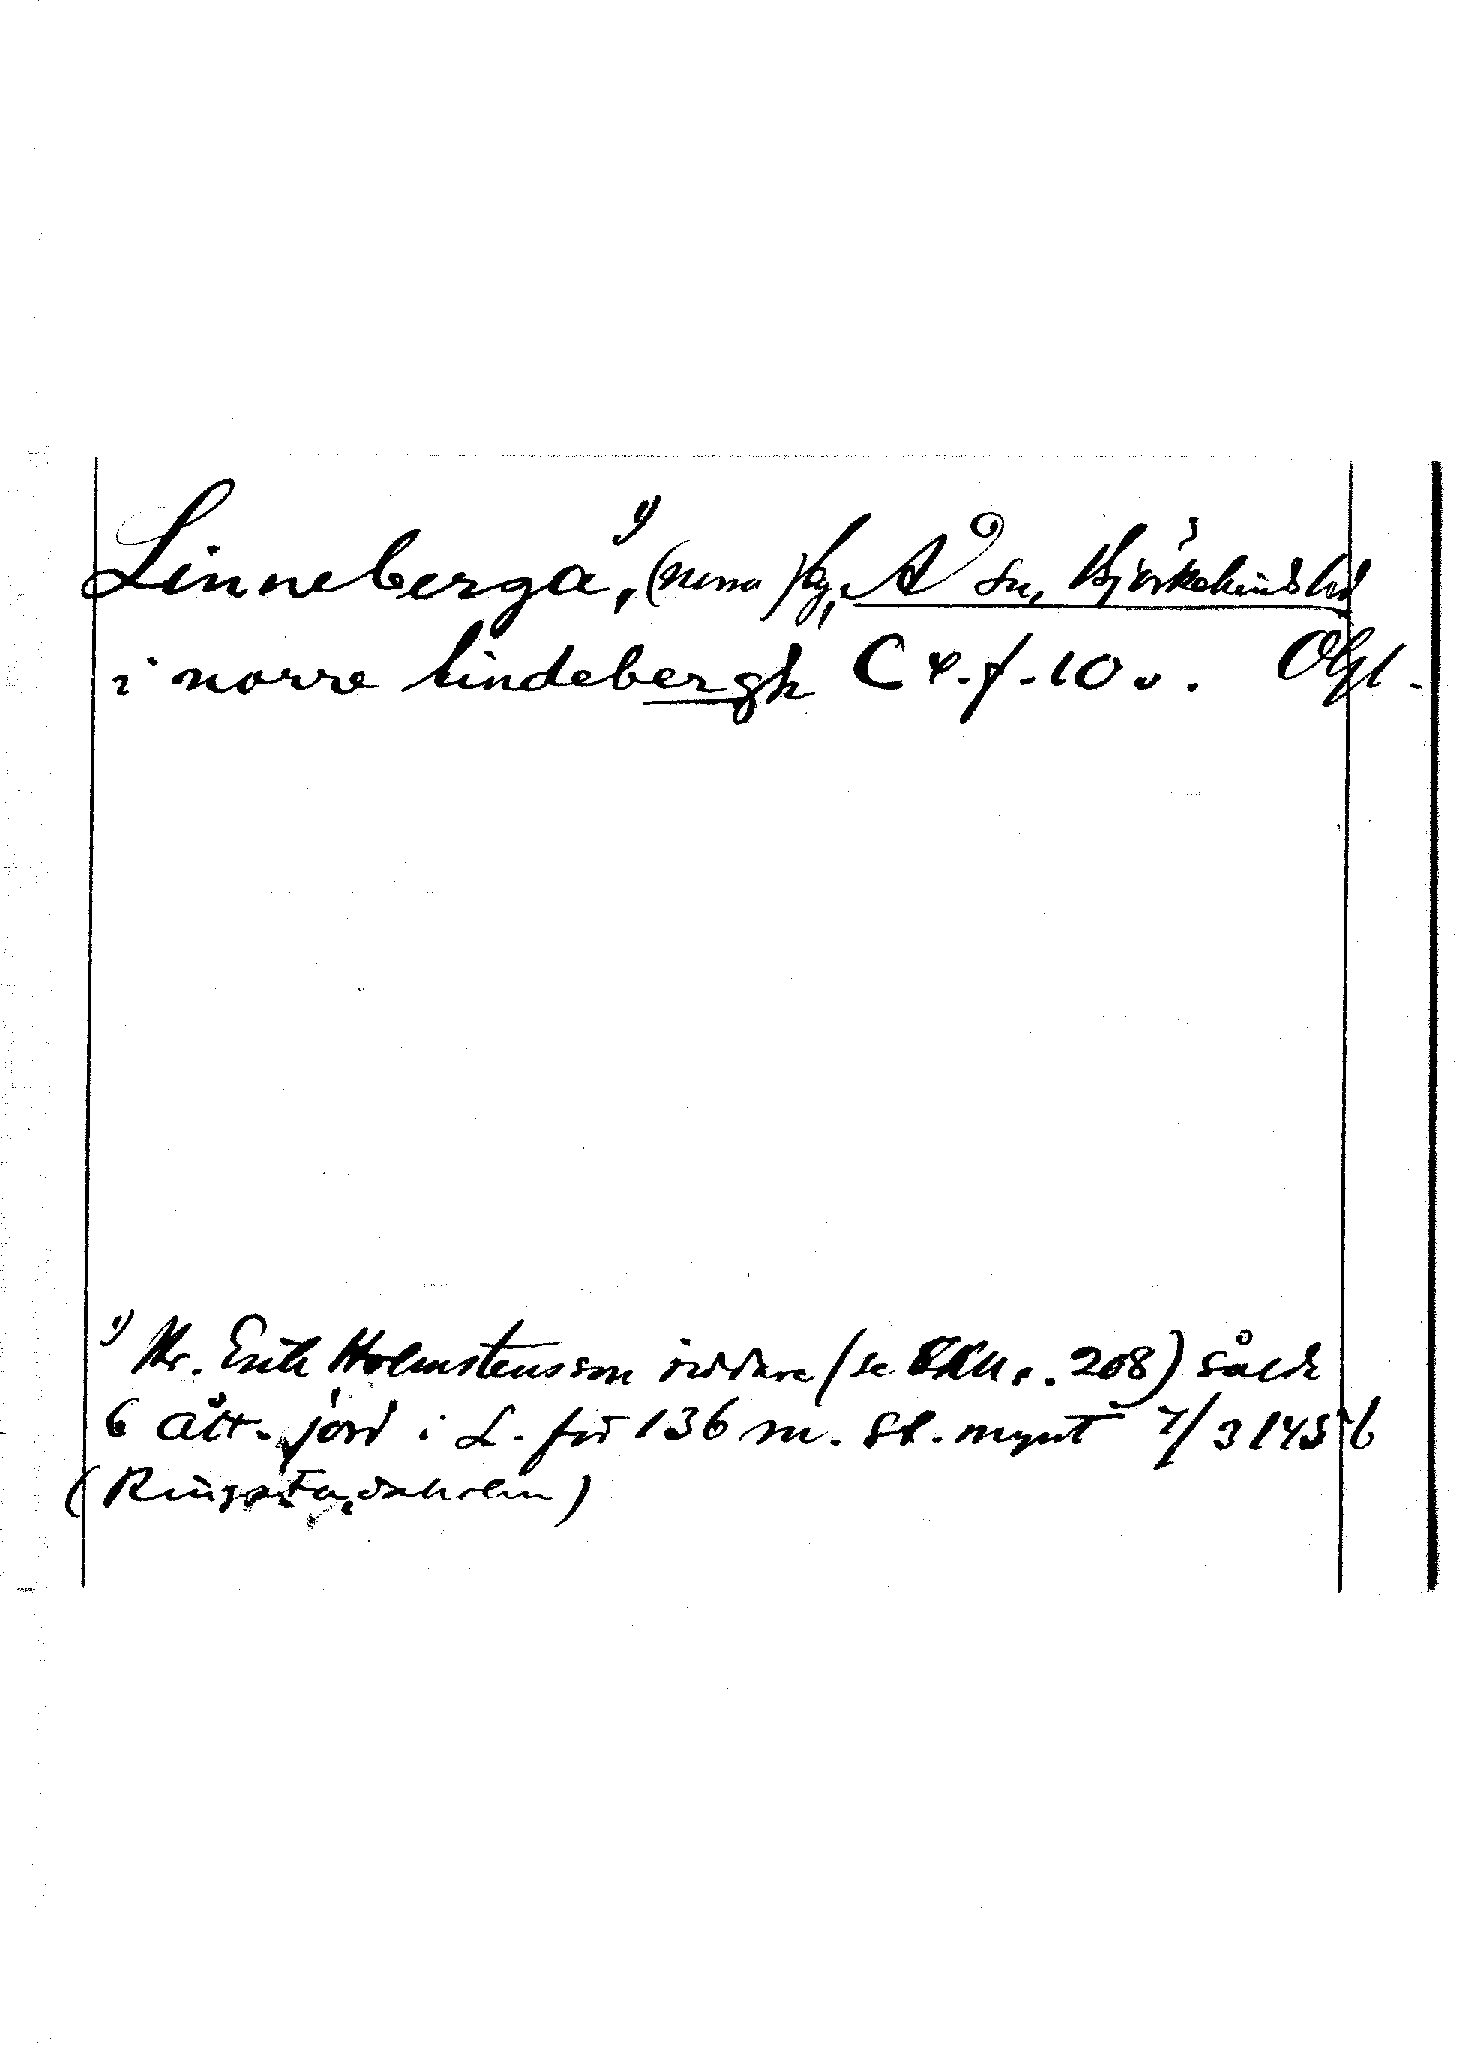 Linneberga,¹⁾ (norra) by, Å sn, Björkekinds hd
i norre lindebergh C 4. f. 10 v. Ögl.
¹⁾ Hr. Erik Holmstensson riddare (se s. 208) sålde
6 ått. jord i L. för 136 m. st. mynt 7/3 1456
(Ringstadaholm)